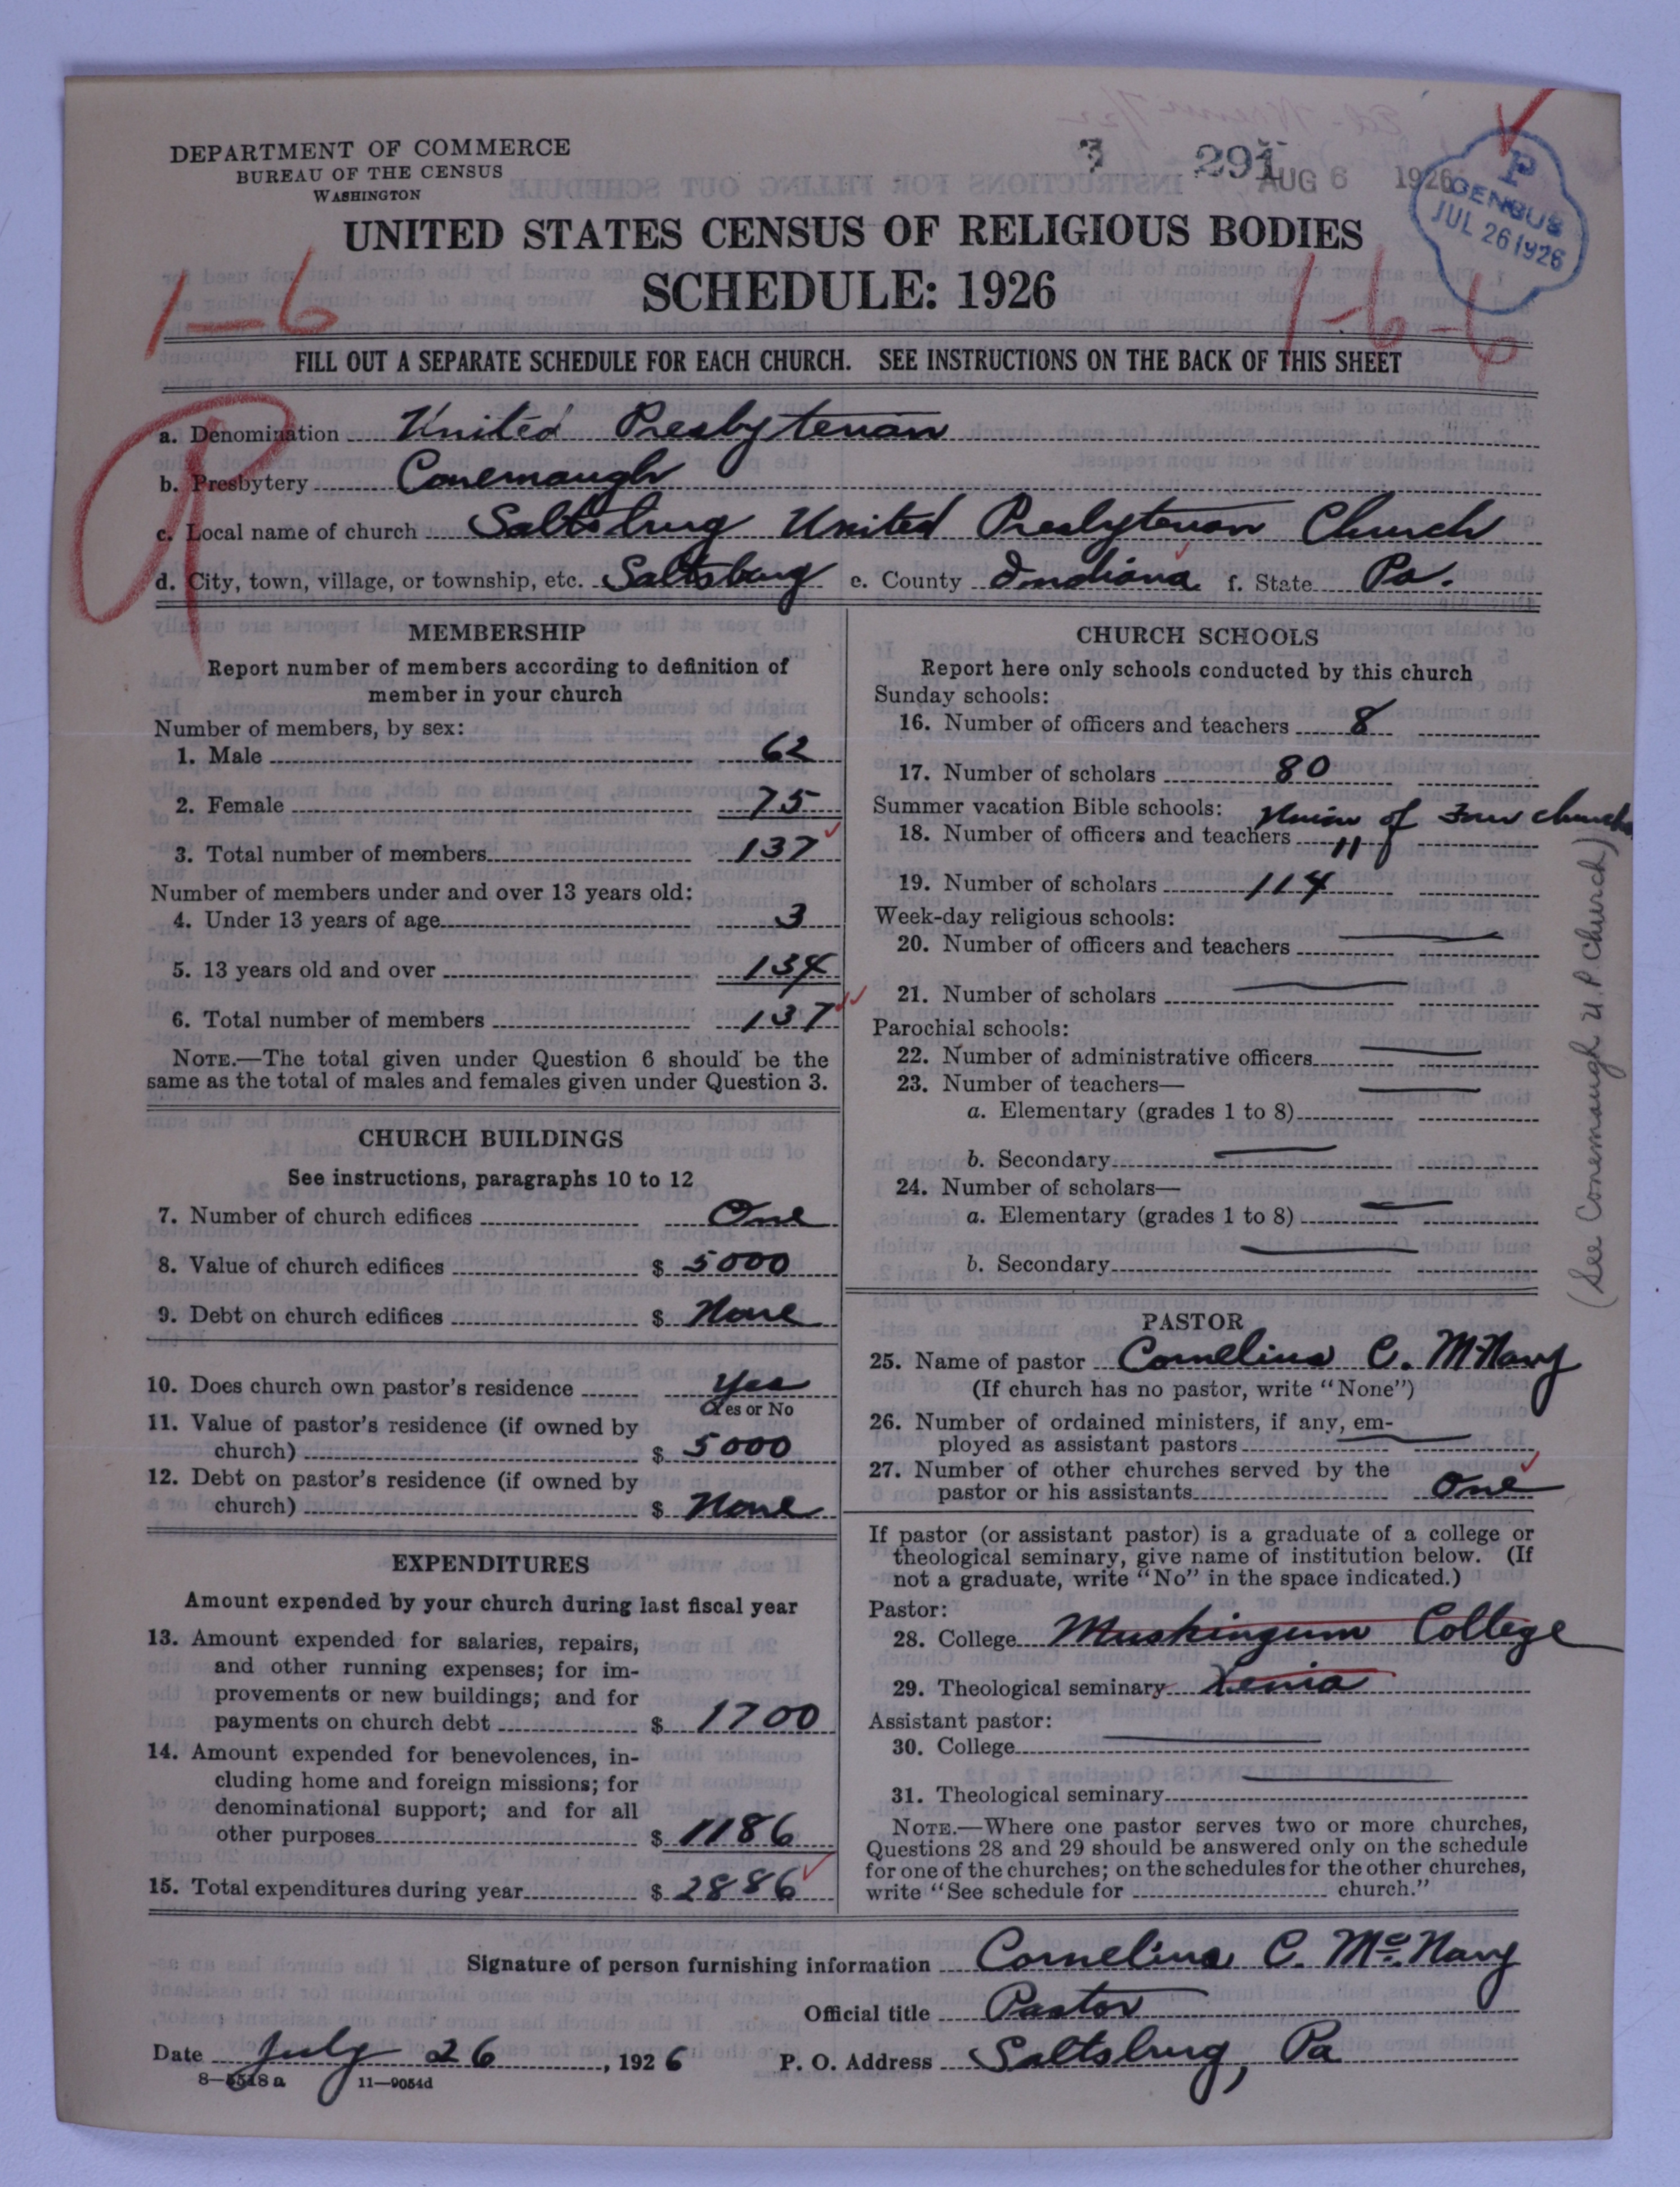 DEPARTMENT OF COMMERCE
BUREAU OF THE CENSUS
WASHINGTON
3 291
AUG 6 1926
P
CENSUS
JUL 26 1926
UNITED STATES CENSUS OF RELIGIOUS BODIES
SCHEDULE: 1926
1-6
1-6-6
FILL OUT A SEPARATE SCHEDULE FOR EACH CHURCH. SEE INSTRUCTIONS ON THE BACK OF THIS SHEET
a. Denomination United Presbyterian
b. Presbytery Conemaugh
c. Local name of church Saltsburg United Presbyterian Church
d. City, town, village, or township, etc. Saltsburg e. County Indiana f. State Pa.
MEMBERSHIP
Report number of members according to definition of
member in your church
Number of members, by sex:
1. Male 62
2. Female 75
3. Total number of members 137
Number of members under and over 13 years old:
4. Under 13 years of age 3
5. 13 years old and over 134
6. Total number of members 137
NOTE.—The total given under Question 6 should be the
same as the total of males and females given under Question 3.
CHURCH BUILDINGS
See instructions, paragraphs 10 to 12
7. Number of church edifices One
8. Value of church edifices $ 5000
9. Debt on church edifices $ None
10. Does church own pastor's residence Yes
Yes or No
11. Value of pastor's residence (if owned by
church) $ 5000
12. Debt on pastor's residence (if owned by
church) $ None
EXPENDITURES
Amount expended by your church during last fiscal year
13. Amount expended for salaries, repairs,
and other running expenses; for im-
provements or new buildings; and for
payments on church debt $ 1700
14. Amount expended for benevolences, in-
cluding home and foreign missions; for
denominational support; and for all
other purposes $ 1186
15. Total expenditures during year $ 2886
CHURCH SCHOOLS
Report here only schools conducted by this church
Sunday schools:
16. Number of officers and teachers 8
17. Number of scholars 80
Summer vacation Bible schools: Union of Four churches
18. Number of officers and teachers 11
19. Number of scholars 114
Week-day religious schools:
20. Number of officers and teachers
21. Number of scholars
Parochial schools:
22. Number of administrative officers
23. Number of teachers—
a. Elementary (grades 1 to 8)
b. Secondary
24. Number of scholars—
a. Elementary (grades 1 to 8)
b. Secondary
(See Conemaugh U.P. Church)
PASTOR
25. Name of pastor Cornelius C. McNary
(If church has no pastor, write "None")
26. Number of ordained ministers, if any, em-
ployed as assistant pastors
27. Number of other churches served by the
pastor or his assistants One
If pastor (or assistant pastor) is a graduate of a college or
theological seminary, give name of institution below. (If
not a graduate, write "No" in the space indicated.)
Pastor:
28. College Muskingum College
29. Theological seminary Xenia
Assistant pastor:
30. College
31. Theological seminary
NOTE.—Where one pastor serves two or more churches,
Questions 28 and 29 should be answered only on the schedule
for one of the churches; on the schedules for the other churches,
write "See schedule for church."
Signature of person furnishing information Cornelius C. McNary
Official title Pastor
Date July 26, 1926 P. O. Address Saltsburg, Pa
8—5518a 11—9054d